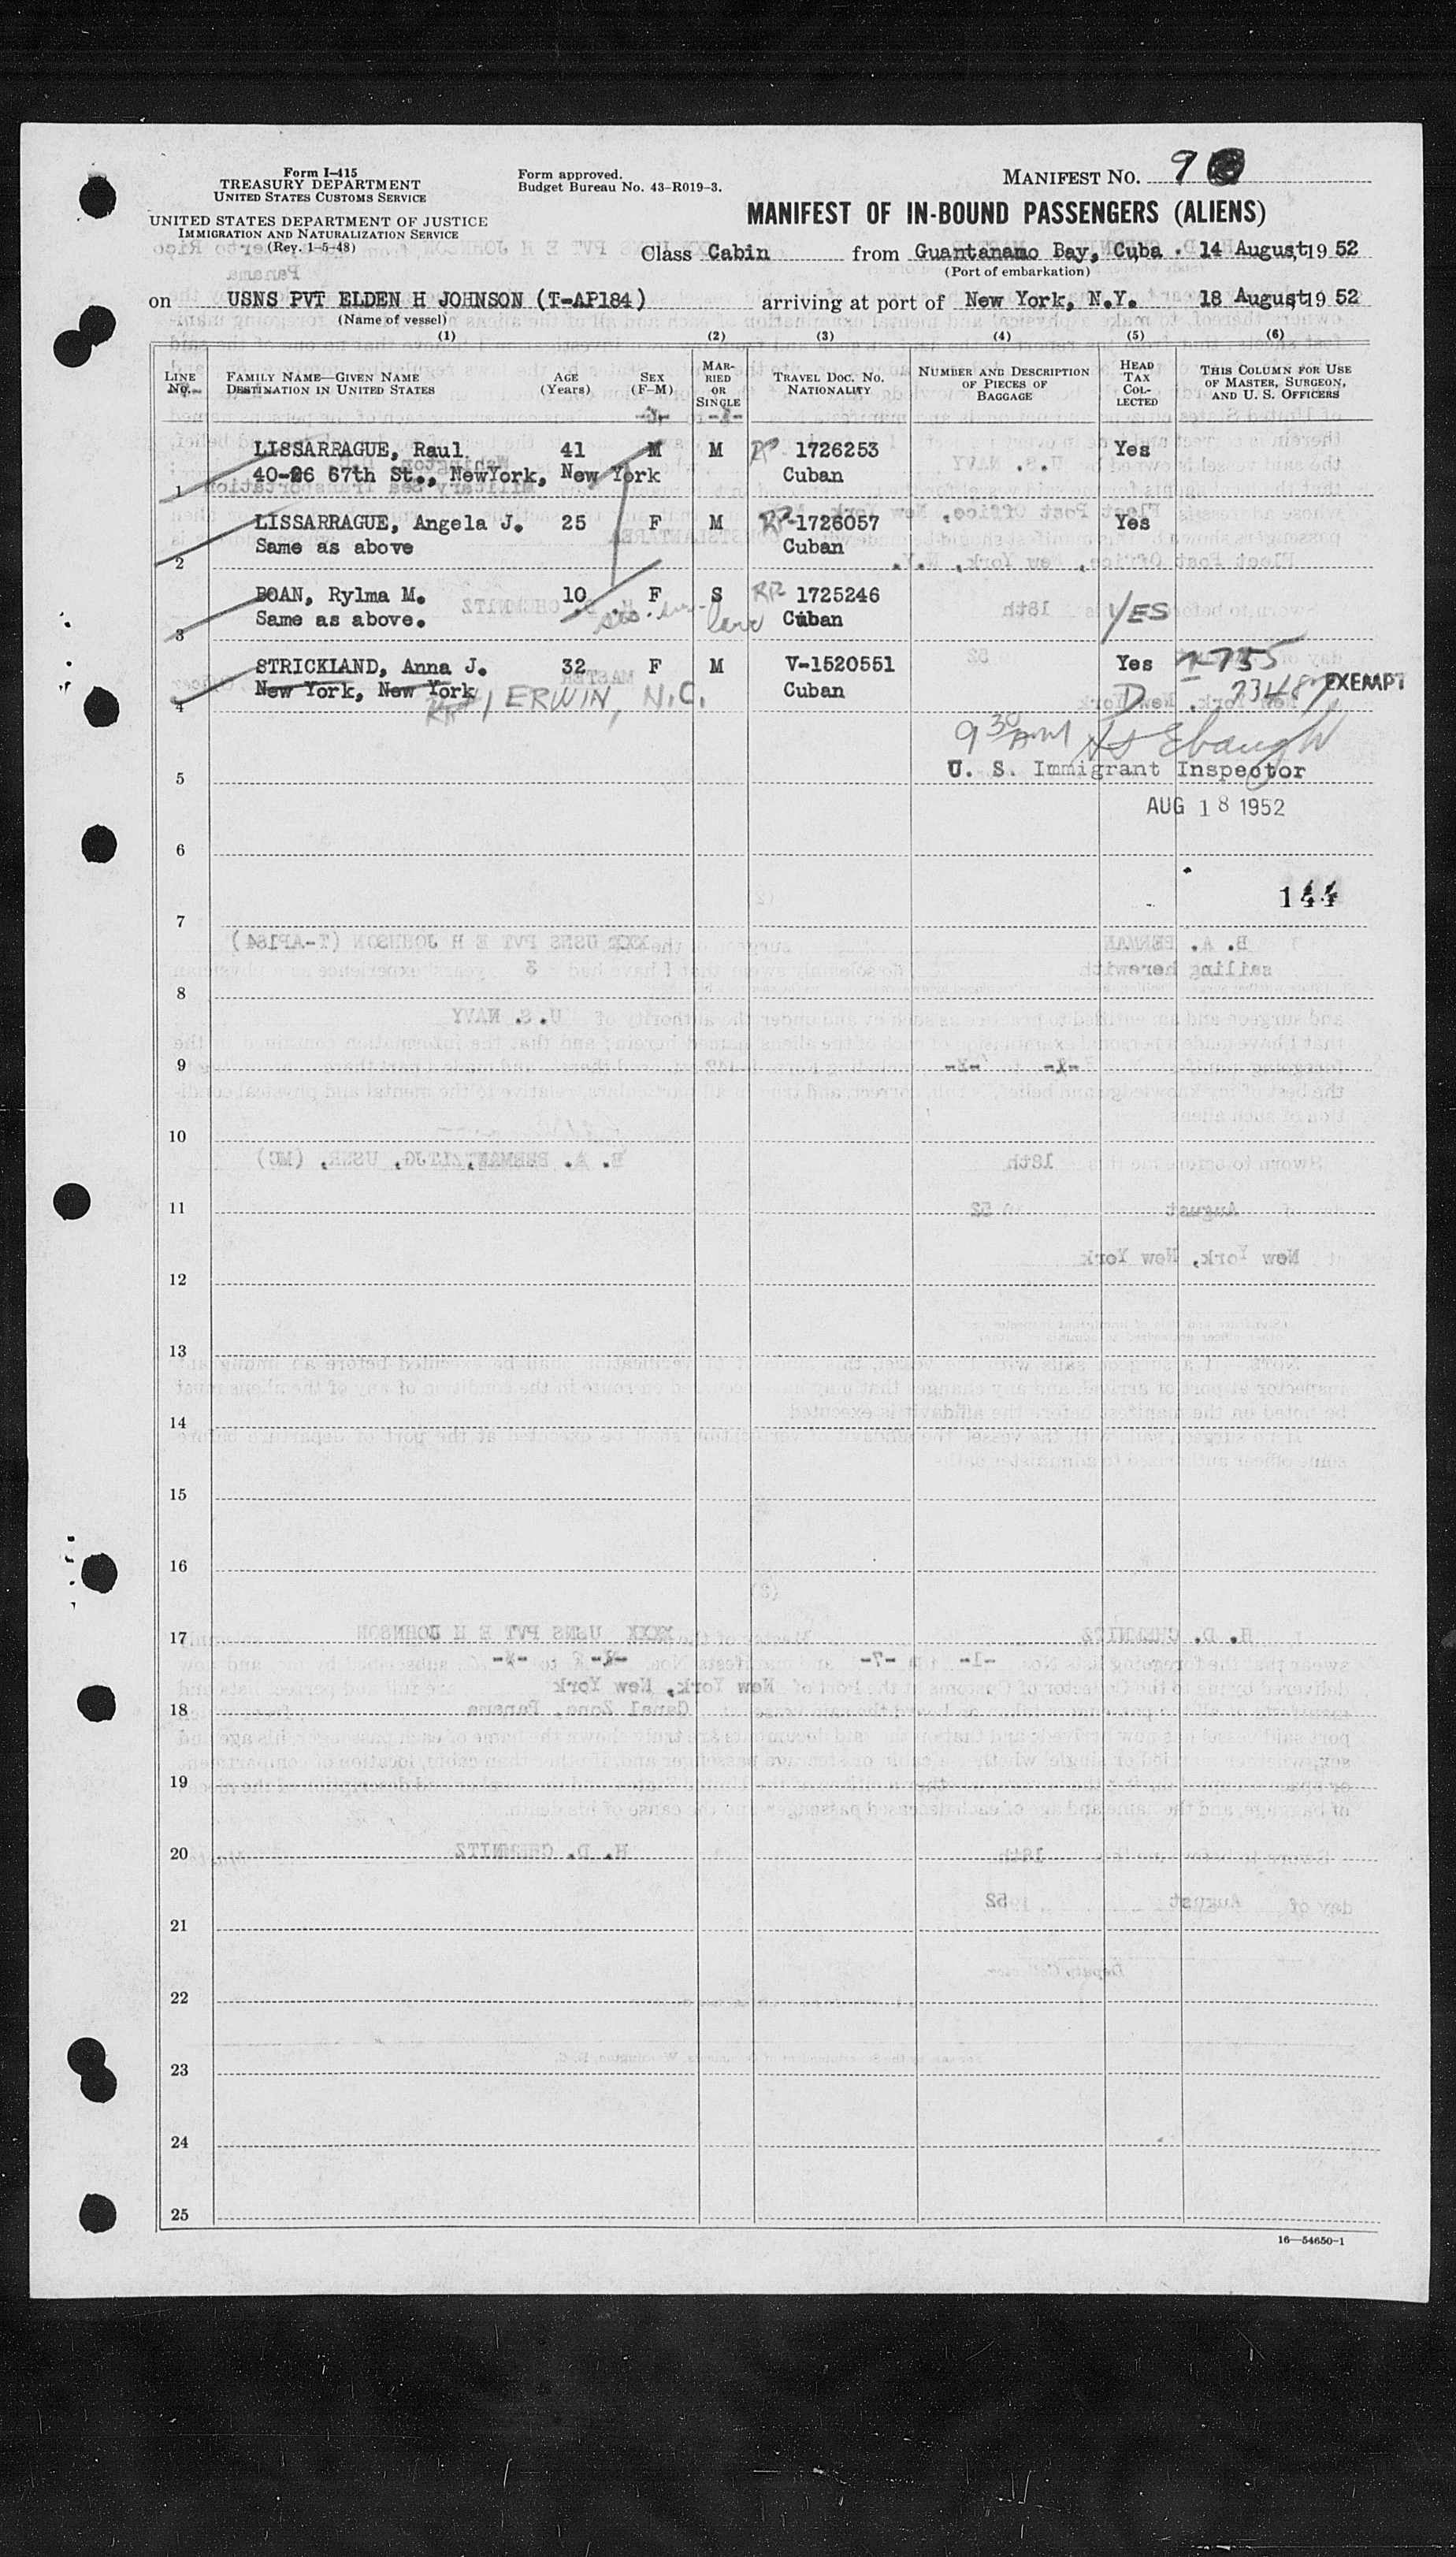 Form I-415
TREASURY DEPARTMENT
UNITED STATES CUSTOMS SERVICE
UNITED STATES DEPARTMENT OF JUSTICE
IMMIGRATION AND NATURALIZATION SERVICE
(Rev. 1-5-48)
Form approved.
Budget Bureau No. 43-R019-3.
MANIFEST No. 9
MANIFEST OF IN-BOUND PASSENGERS (ALIENS)
Class Cabin from Guantanamo Bay, Cuba. 14 August, 19 52
(Port of embarkation)
on USNS PVT ELDEN H JOHNSON (T-AP184) arriving at port of New York, N.Y. 18 August, 19 52
(Name of vessel)
(1) (2) (3) (4) (5) (6)
LINE No. FAMILY NAME—GIVEN NAME DESTINATION IN UNITED STATES AGE (Years) SEX (F-M) MARRIED OR SINGLE TRAVEL DOC. NO. NATIONALITY NUMBER AND DESCRIPTION OF PIECES OF BAGGAGE HEAD TAX COLLECTED THIS COLUMN FOR USE OF MASTER, SURGEON, AND U. S. OFFICERS
LISSARRAGUE, Raul 41 M M RP 1726253 Yes
1 40-26 67th St., NewYork, New York Cuban
LISSARRAGUE, Angela J. 25 F M RP-1726057 Yes
2 Same as above Cuban
BOAN, Rylma M. 10 F S RP 1725246 YES
3 Same as above. Cuban
STRICKLAND, Anna J. 32 F M V-1520551 Yes 1-755
4 New York, New York Cuban D EXEMPT
1 ERWIN, N.C.
9 30 AM
5 U. S. Immigrant Inspector
AUG 18 1952
6
144
7
8
9
10
11
12
13
14
15
16
17
18
19
20
21
22
23
24
25
16—54650-1